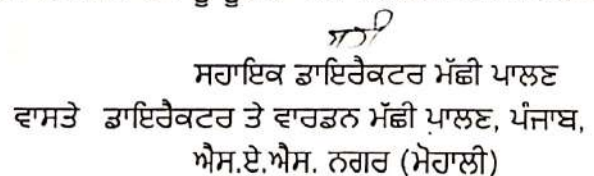 ਸਹਾਇਕ ਡਾਇਰੈਕਟਰ ਮੱਛੀ ਪਾਲਣ
ਵਾਸਤੇ ਡਾਇਰੈਕਟਰ ਤੇ ਵਾਰਡਨ ਮੱਛੀ ਪਾਲਣ, ਪੰਜਾਬ,
ਐਸ.ਏ.ਐਸ. ਨਗਰ (ਮੋਹਾਲੀ)